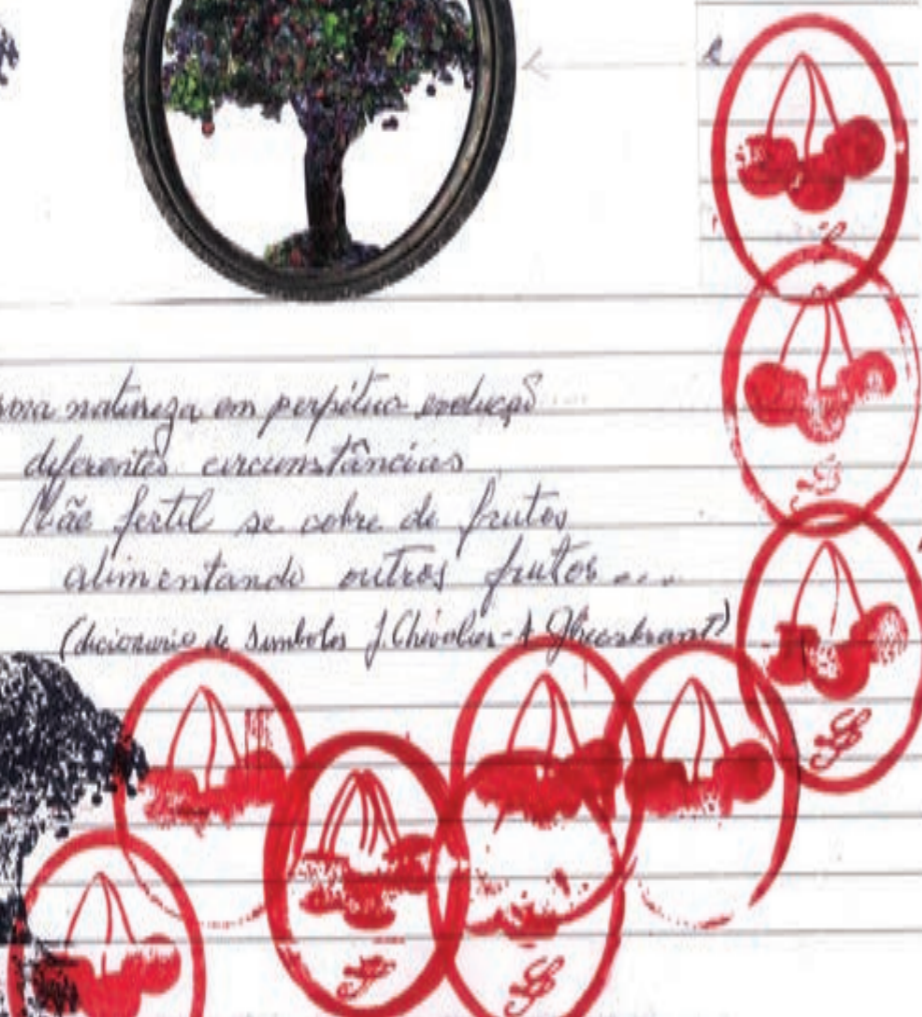 natureza em perpétua evolução
diferentes circunstâncias
Mãe fertil se cobre de frutos
alimentando outros frutos...
(dicionario de simbolos J.Chevalier-A Gheerbrant)